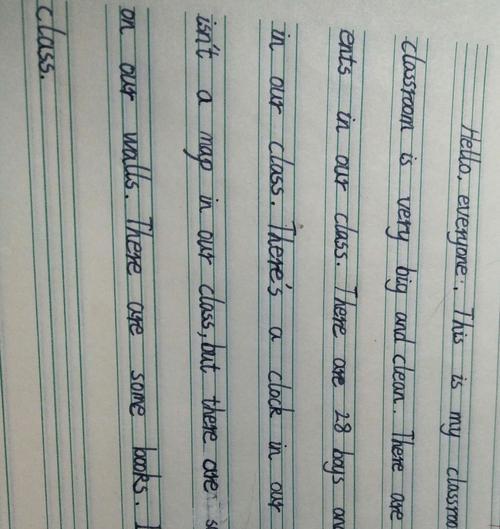 Hello, everyone. This is my
classroom is very big and clean. There are
ents in our class. There are 28 boys
in our class. There's a clock in our
isn't a map in our class, but there are
on our walls. There are some books.
class.